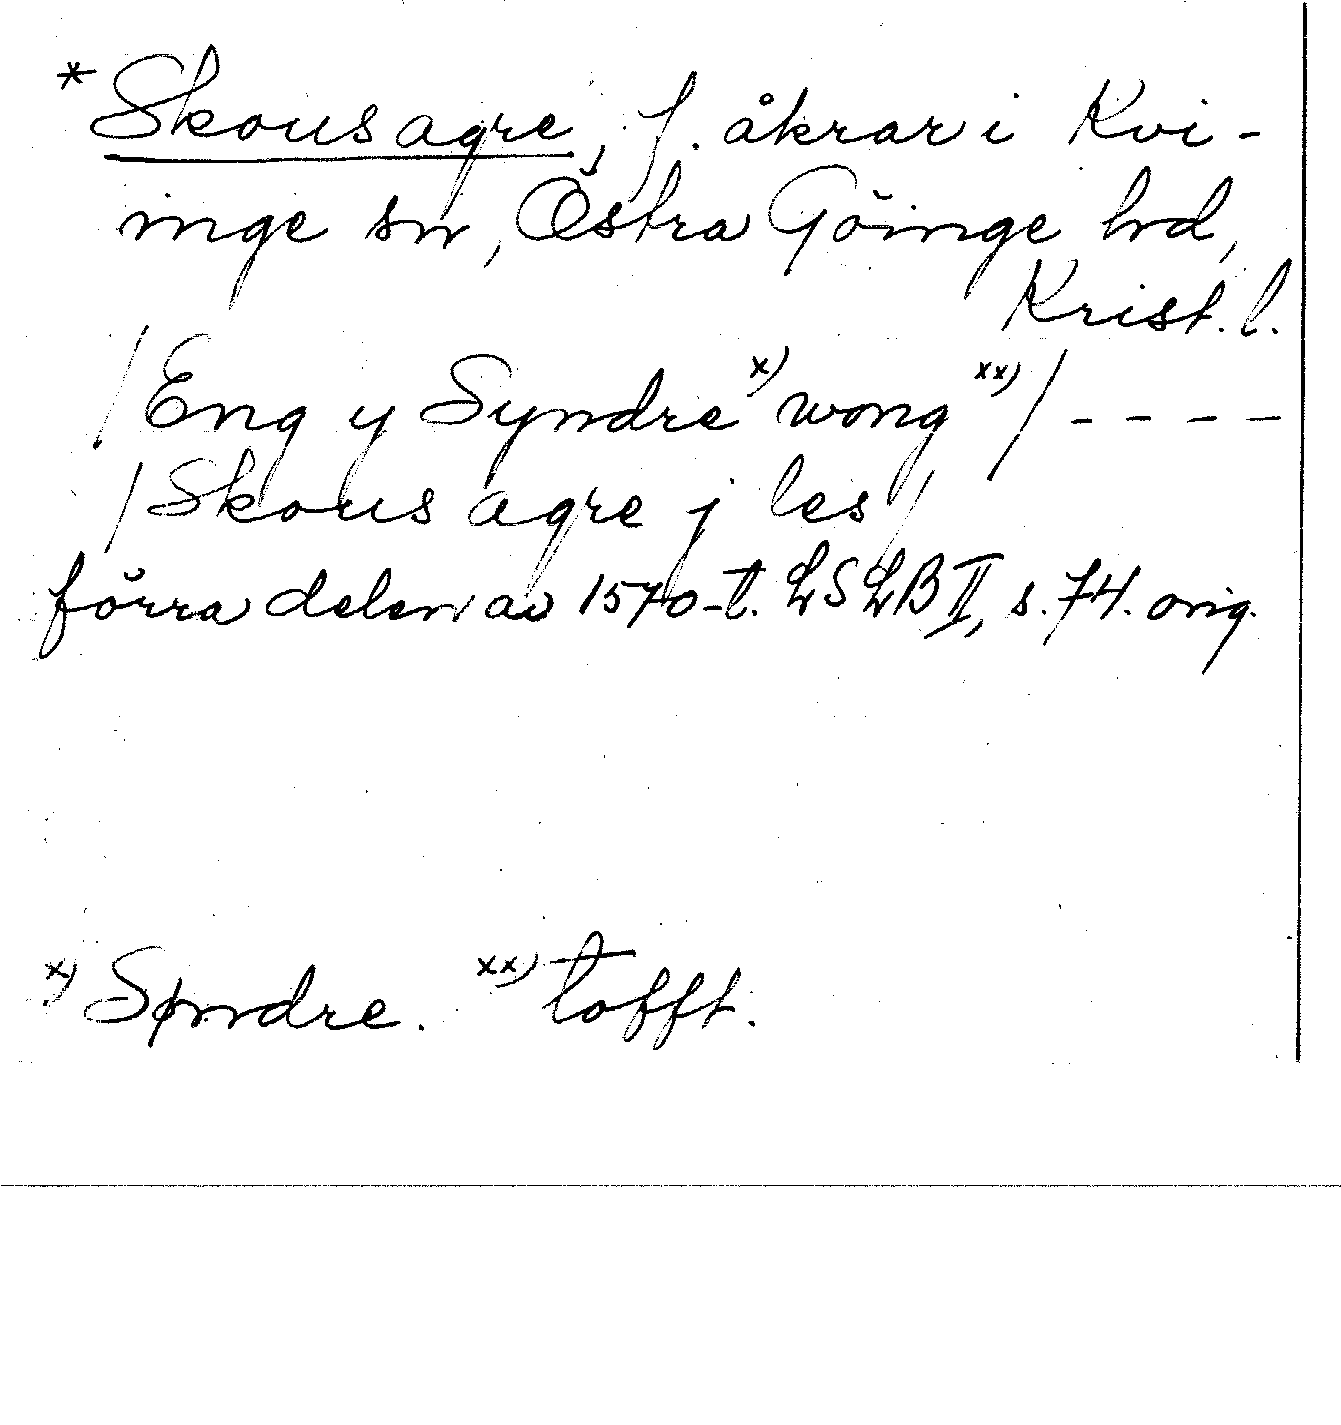 *Skousagre, f. åkrar i Kvi-
inge sn, Östra Göinge hd,
Krist. l.
/Eng y Syndre x) wong xx)/ - - - -
/Skous agre j les/
förra delen av 1570-t. LSLB II, s. 74. orig.
x) Søndre. xx) tofft.